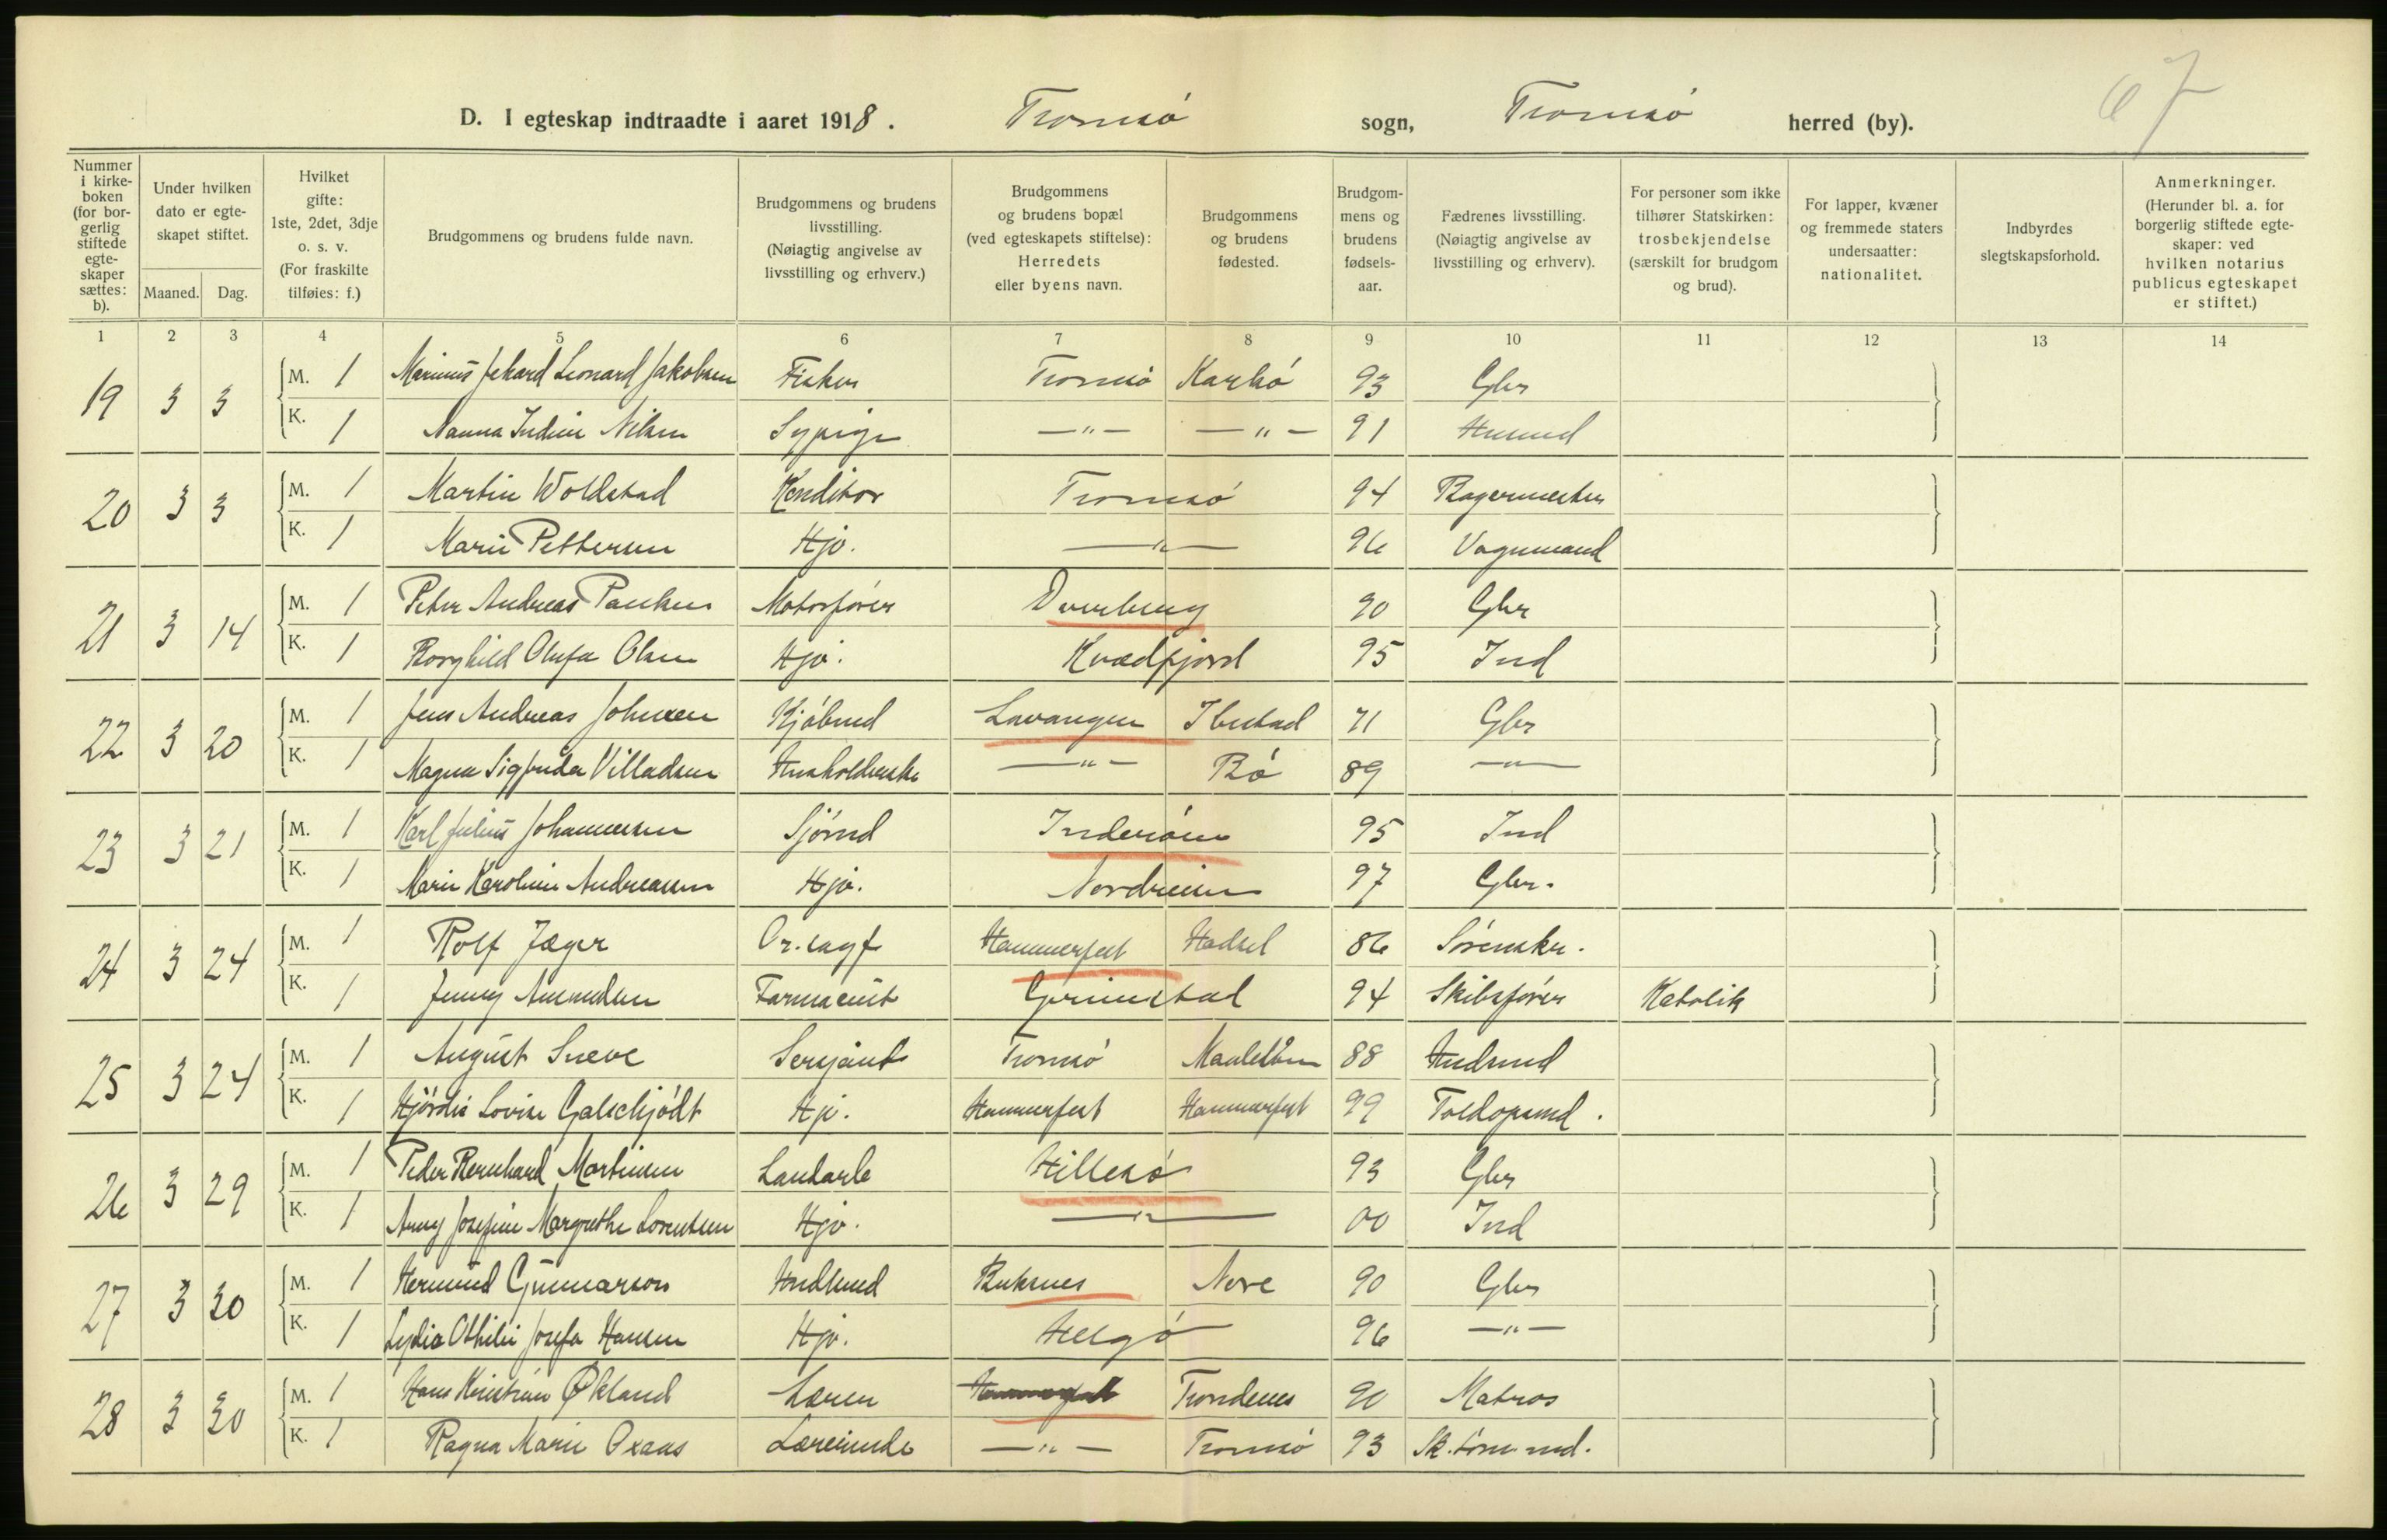 67
D. I egteskap indtraadte i aaret 1918. Tromsø sogn, Tromsø herred (by).
Nummer i kirkeboken (for borgerlig stiftede egteskaper sættes: b).
Under hvilken dato er egteskapet stiftet.
Maaned. Dag.
Hvilket gifte: 1ste, 2det, 3dje o. s. v. (For fraskilte tilføies: f.)
Brudgommens og brudens fulde navn.
Brudgommens og brudens livsstilling. (Nøiagtig angivelse av livsstilling og erhverv.)
Brudgommens og brudens bopæl (ved egteskapets stiftelse): Herredets eller byens navn.
Brudgommens og brudens fødested.
Brudgommens og brudens fødselsaar.
Fædrenes livsstilling. (Nøiagtig angivelse av livsstilling og erhverv).
For personer som ikke tilhører Statskirken: trosbekjendelse (særskilt for brudgom og brud).
For lapper, kvæner og fremmede staters undersaatter: nationalitet.
Indbyrdes slegtskapsforhold.
Anmerkninger. (Herunder bl. a. for borgerlig stiftede egteskaper: ved hvilken notarius publicus egteskapet er stiftet.)
1 2 3 4 5 6 7 8 9 10 11 12 13 14
19 3 3 M. 1 Marius Leonard Jakobsen Fisker Tromsø Karlsø 93 Gbr
K. 1 Nanna Indine Nilsen Sypige —"— —"— 91 Husmd
20 3 3 M. 1 Martin Woldstad Konditor Tromsø 94 Bagermester
K. 1 Marie Pettersen Hjv. —"— 96 Vognmand
21 3 14 M. 1 Peter Andreas Paulsen Motorfører Dverberg 90 Gbr
K. 1 Borghild Olufa Olsen Hjv. Kvædfjord 95 Ind
22 3 20 M. 1 Jens Andreas Johnsen Kjøbmd Lavangen Ibestad 71 Gbr
K. 1 Magna Sigfrida Villadsen Husholderske —"— Bø 89 —"—
23 3 21 M. 1 Karl Julius Johannesen Sjømd Inderøen 95 Ind
K. 1 Marie Karoline Andreassen Hjv. Nordreisen 97 Gbr.
24 3 24 M. 1 Rolf Jæger Or.sagf Hammerfest Hadsel 86 Sorenskr.
K. 1 Jenny Amundsen Farmaceut Grimstad 94 Skibsfører Katolik
25 3 24 M. 1 August Sneve Sersjant Tromsø 88 Hudsmd
K. 1 Hjørdis Lovise Galschjødt Hjv. Hammerfest Hammerfest 99 Toldopsmd.
26 3 29 M. 1 Peder Bernhard Martinsen Landarb Hillesø 93 Gbr
K. 1 Anny Josefine Margrethe Lorentsen Hjv. —"— 00 Ind
27 3 30 M. 1 Hermund Gunnarson Hndlsmd Buksnes Nore 90 Gbr
K. 1 Lydia Othilie Josefa Hansen Hjv. Helgø 96 —"—
28 3 30 M. 1 Hans Kristian Økland Lærer Hammerfest Trondenes 90 Matros
K. 1 Ragna Marie Oxaas Lærerinde —"— Tromsø 93 Sk.tømmd.